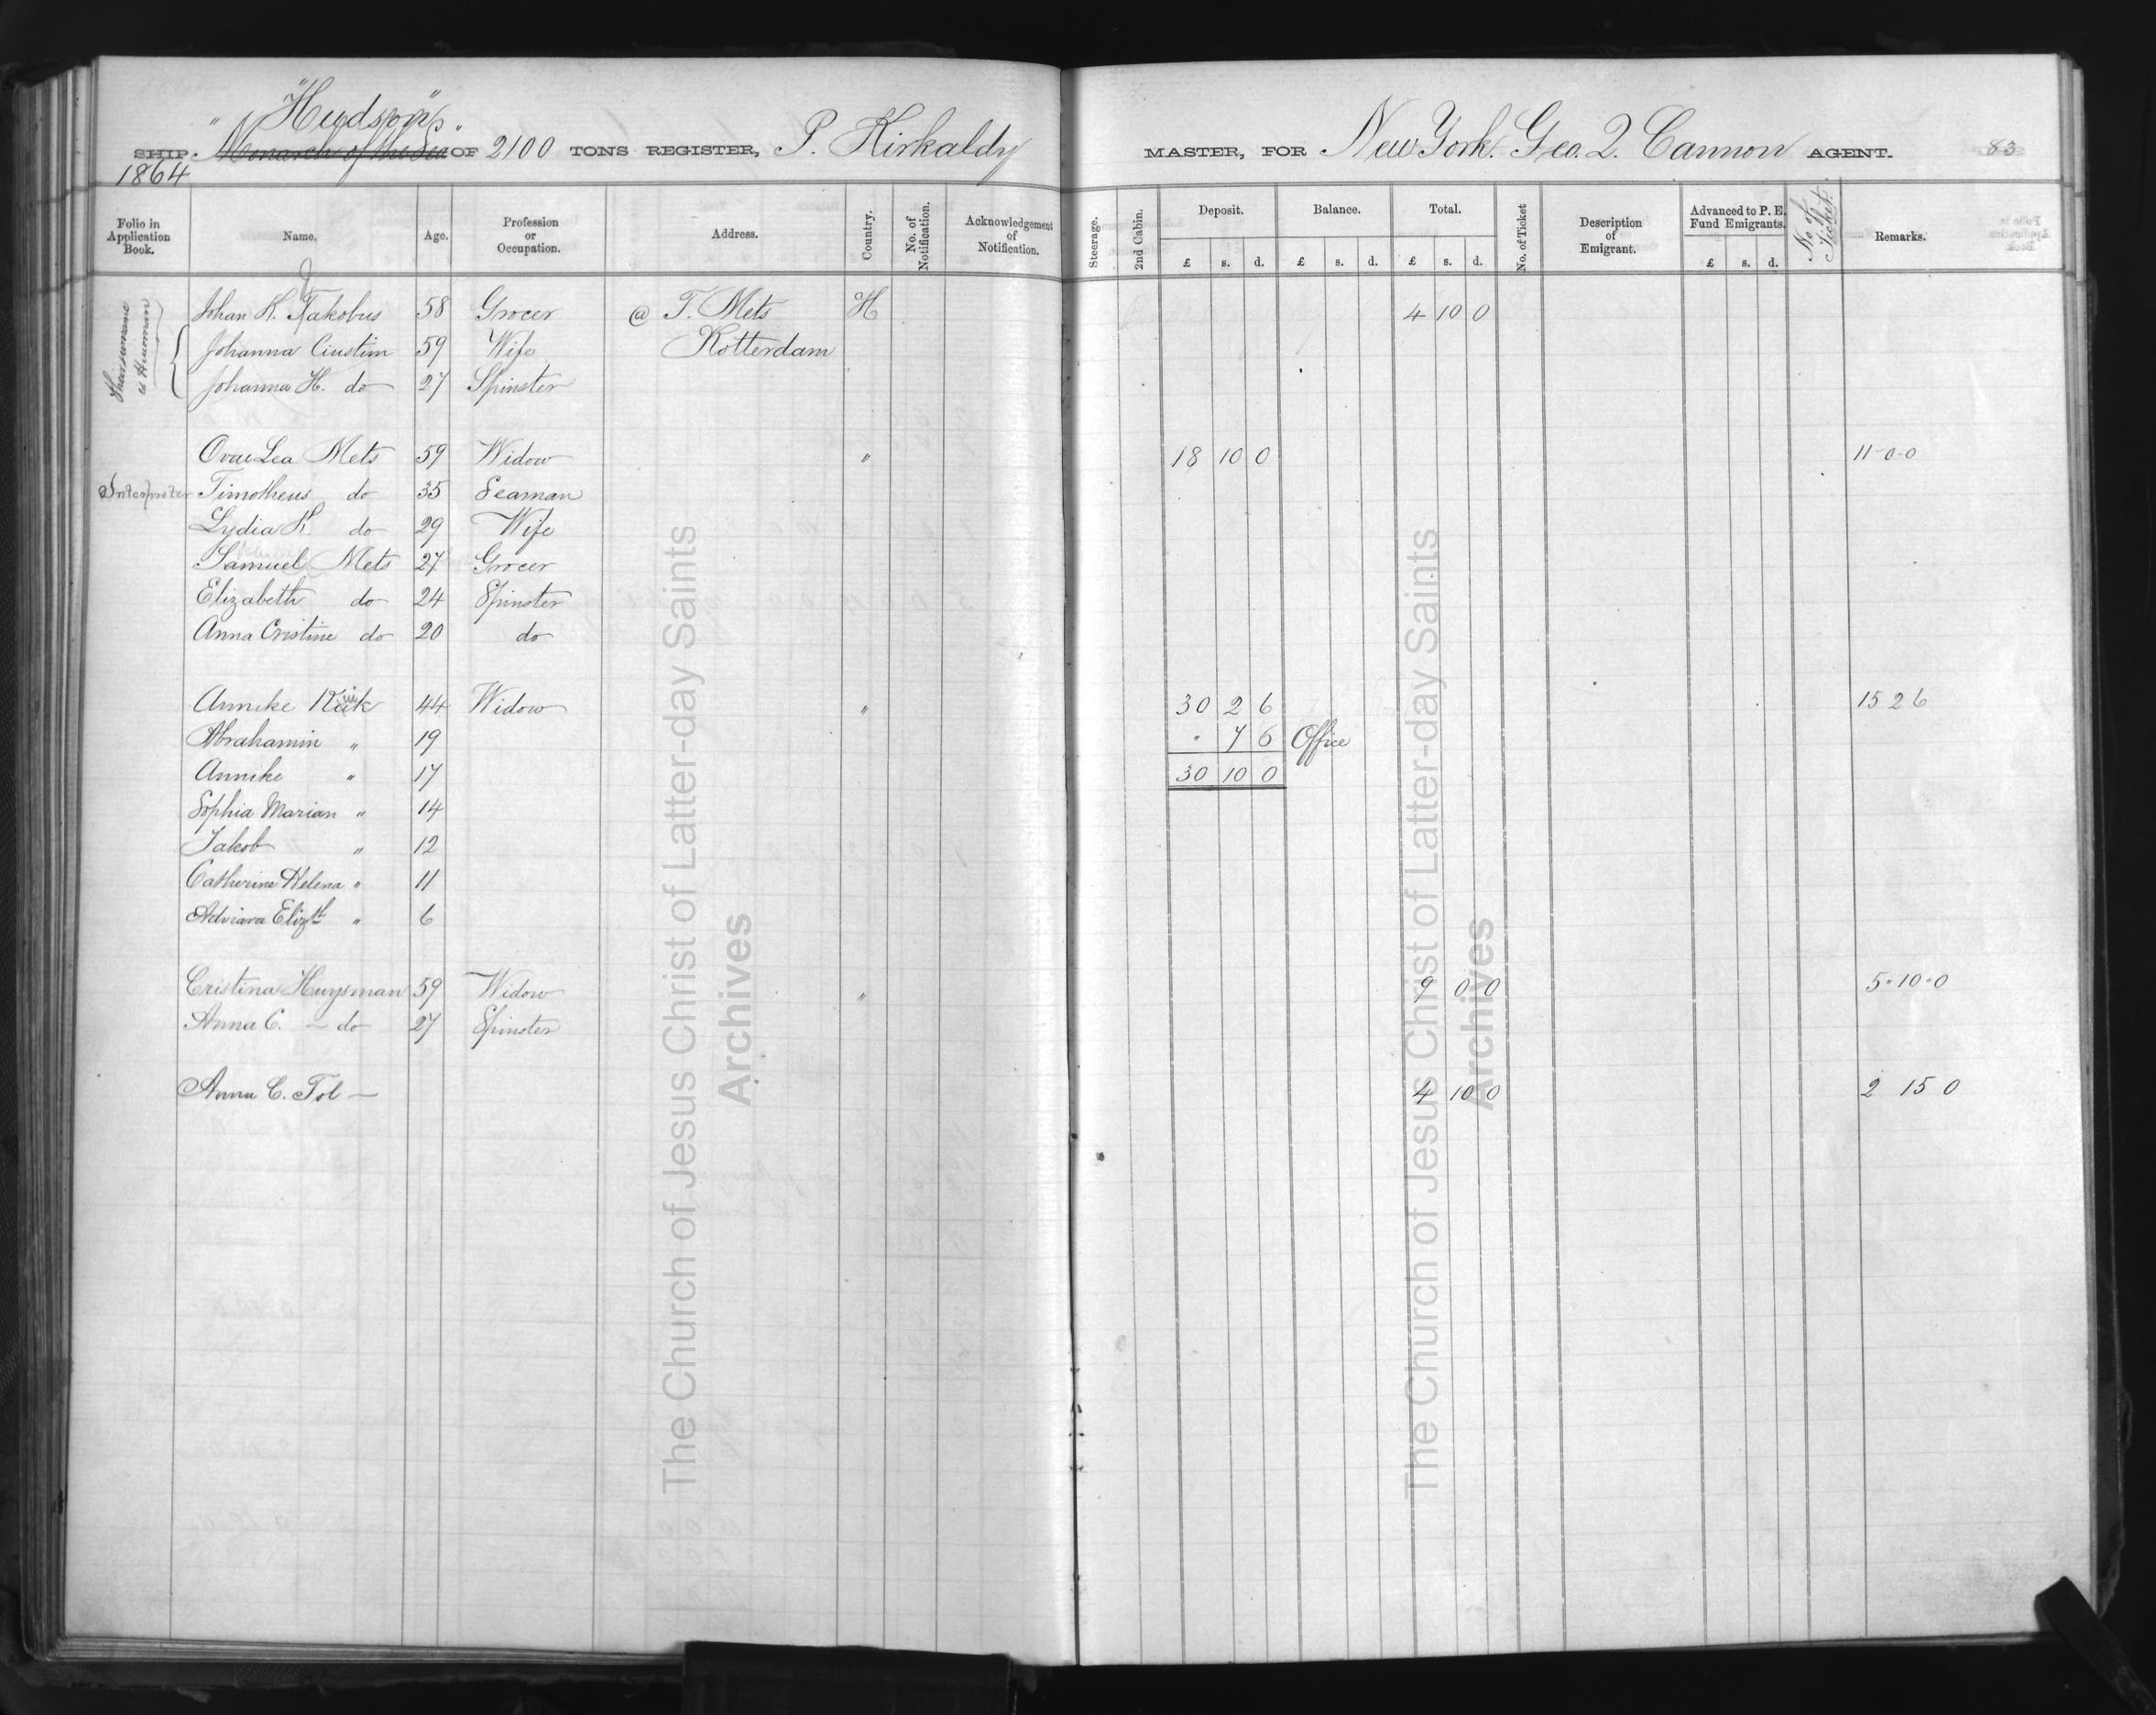 "Hudson"
SHIP. "Monarch of the Sea" OF 2100 TONS REGISTER, P. Kirkaldy MASTER, FOR New York. Geo. Q. Cannon AGENT. 83
1864
Folio in Application Book. Name. Age. Profession or Occupation. Address. Country. No. of Notification. Acknowledgement of Notification. Steerage. 2nd Cabin. Deposit. £ s. d. Balance. £ s. d. Total. £ s. d. No. of Ticket Description of Emigrant. Advanced to P. E. Fund Emigrants. £ s. d. No of Ticket. Remarks.
Johan K. Jakobus 58 Grocer @ T. Mets H 4 10 0
Johanna 59 Wife Rotterdam
Johanna H. do 27 Spinster
Lea Mets 59 Widow " 18 10 0 11-0-0
Interpreter Timotheus do 35 Seaman
Lydia K. do 29 Wife
Samuel Mets 27 Grocer
Elizabeth do 24 Spinster
Anna Cristine do 20 do
Anneke 44 Widow " 30 2 6 15 2 6
Abrahamin " 19 " 7 6 Office
Annike " 17 30 10 0
Sophia Marian " 14
Jakob " 12
Catherine Helena " 11
Adriara Elizth " 6
Cristina Huysman 59 Widow " 9 0 0 5-10-0
Anna C. - do 27 Spinster
Anna C. Tol — 4 10 0 2 15 0
The Church of Jesus Christ of Latter-day Saints
Archives
The Church of Jesus Christ of Latter-day Saints
Archives